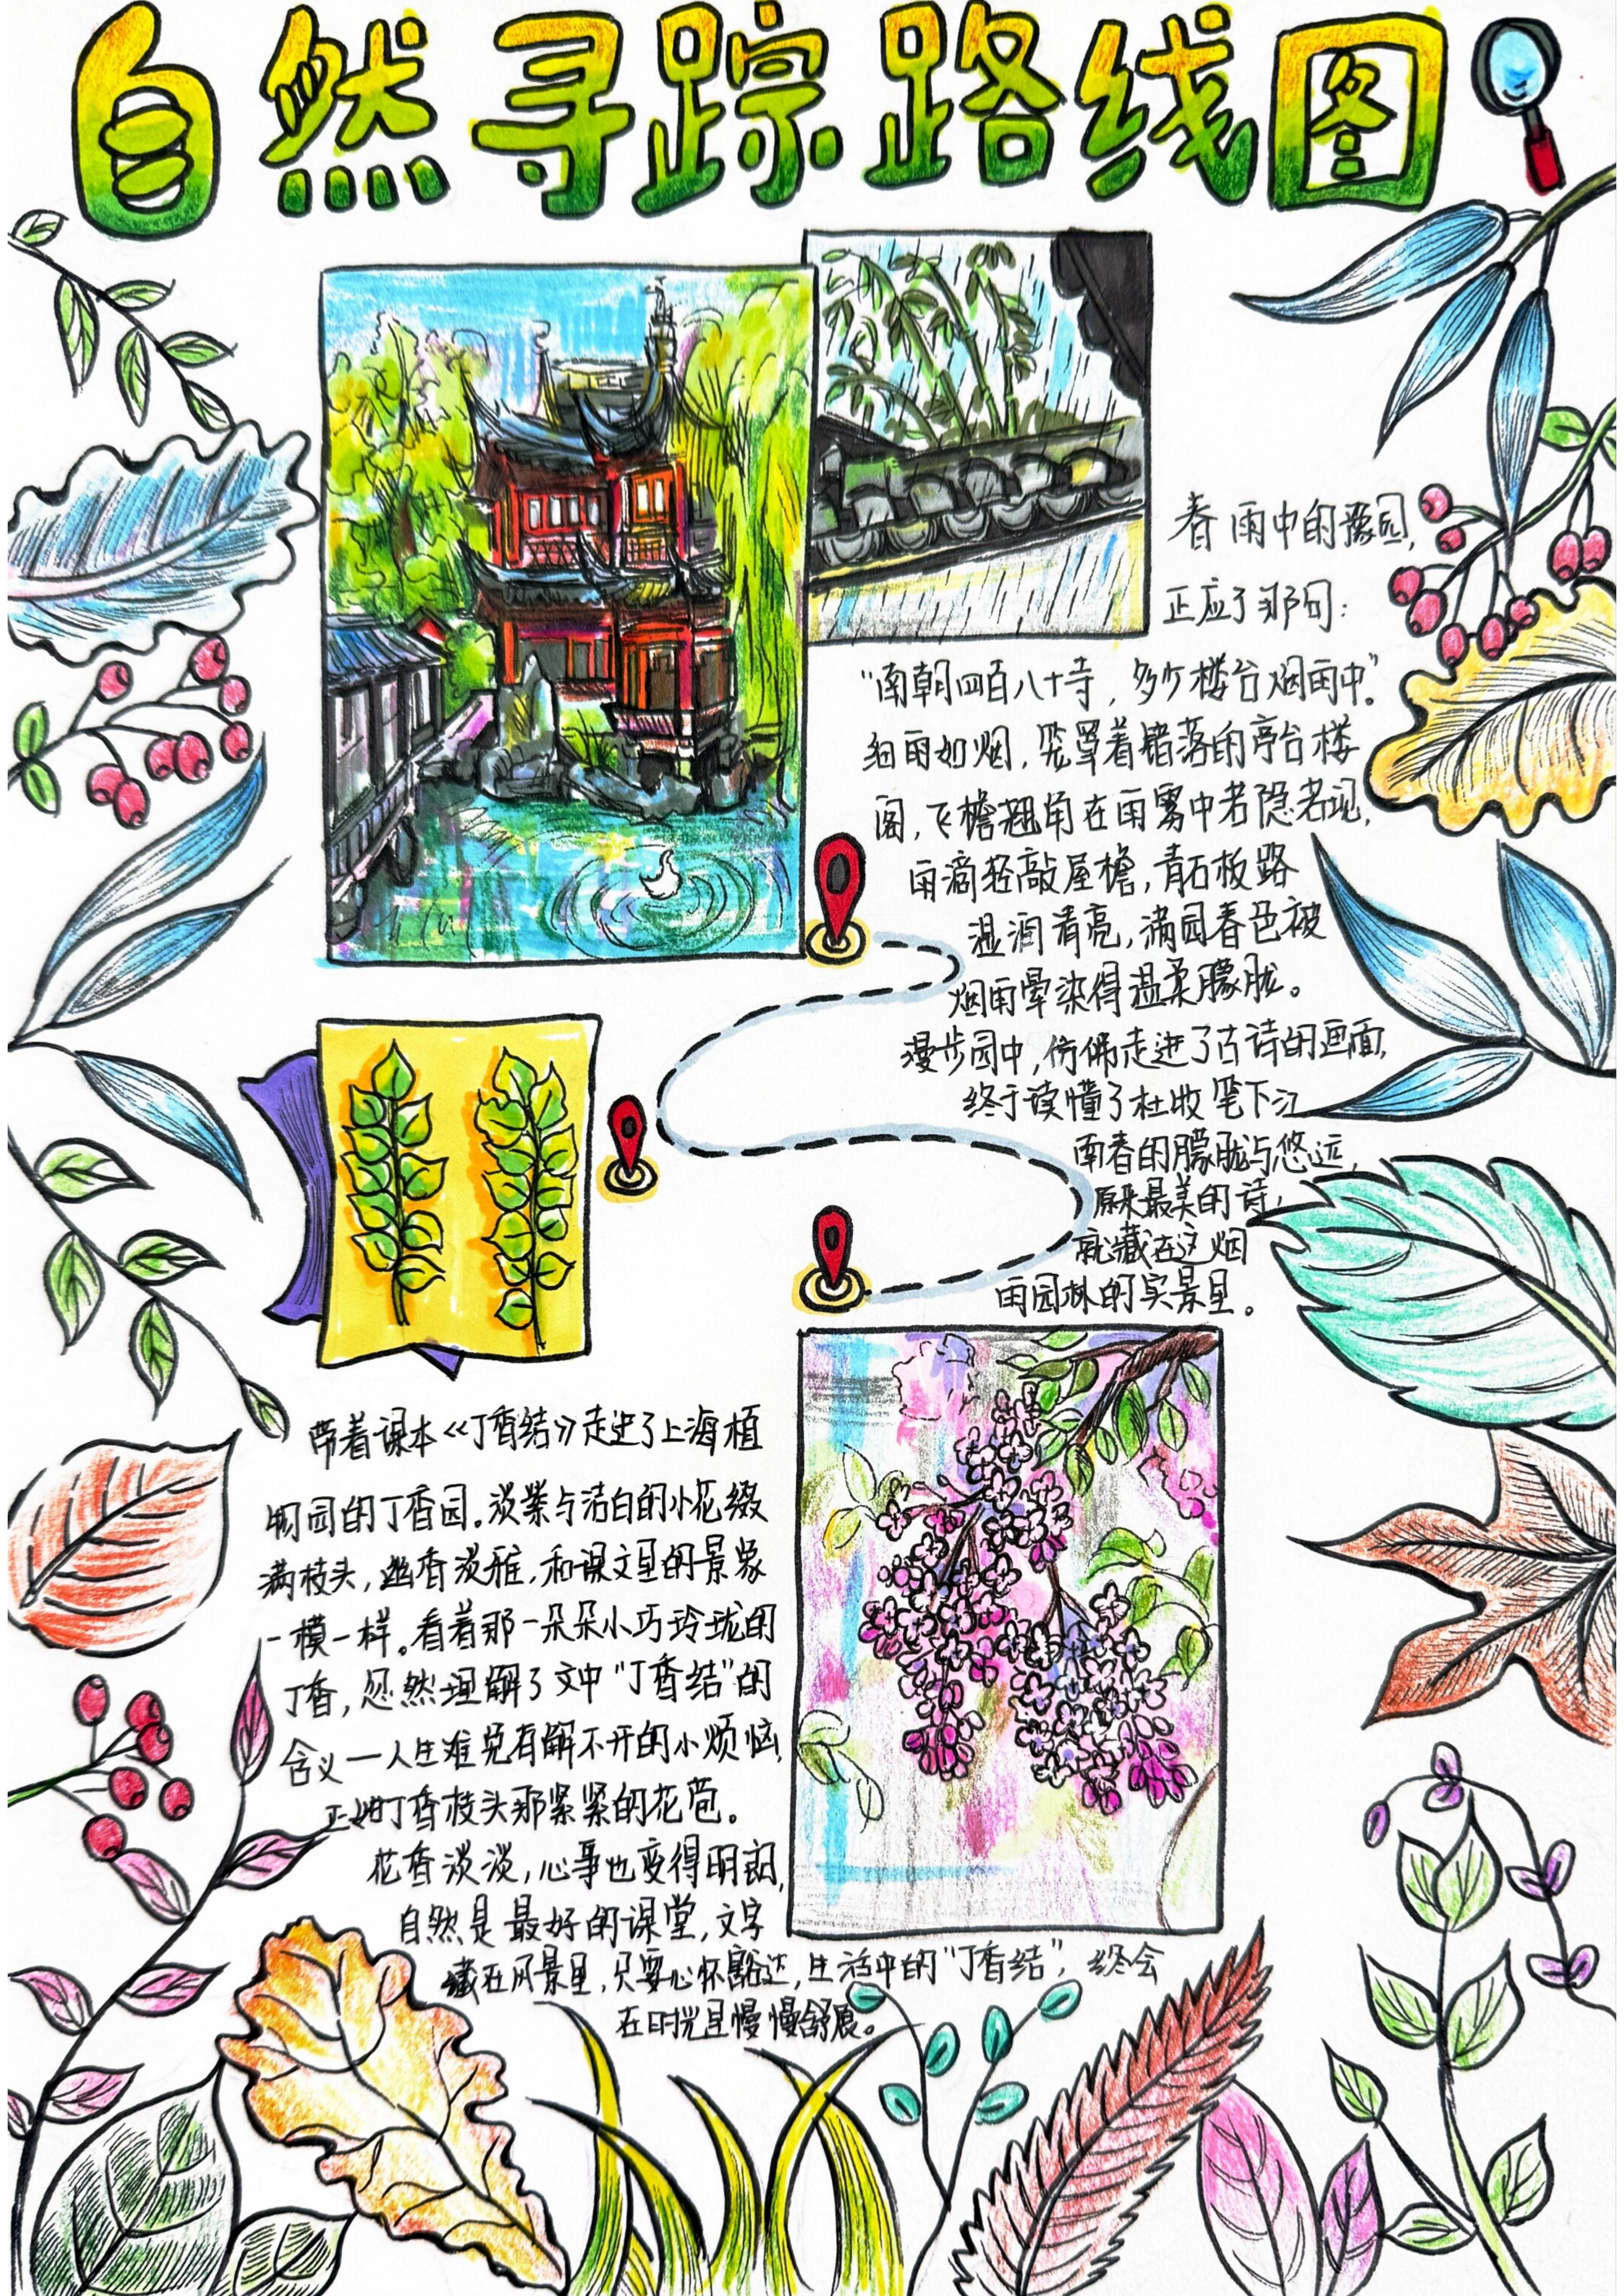 自然寻踪路线图
春雨中的豫园,
正应了那句:
"南朝四百八十寺,多少楼台烟雨中"。
细雨如烟,笼罩着错落的亭台楼
阁,飞檐翘角在雨雾中若隐若现,
雨滴轻敲屋檐,青石板路
湿润清亮,满园春色被
烟雨晕染得温柔朦胧。
漫步园中,仿佛走进了古诗的画面,
终于读懂了杜牧笔下江
南春的朦胧与悠远,
原来最美的诗,
就藏在这烟
雨园林的实景里。
带着课本《丁香结》走进了上海植
物园的丁香园。淡紫与洁白的小花缀
满枝头,幽香淡雅,和课文里的景象
一模一样。看着那一朵朵小巧玲珑的
丁香,忽然理解了文中"丁香结"的
含义一人生难免有解不开的小烦恼,
正如丁香枝头那紧紧的花苞。
花香淡淡,心事也变得明朗,
自然是最好的课堂,文字
藏在风景里,只要心怀豁达,生活中的"丁香结",终会
在时光里慢慢舒展。